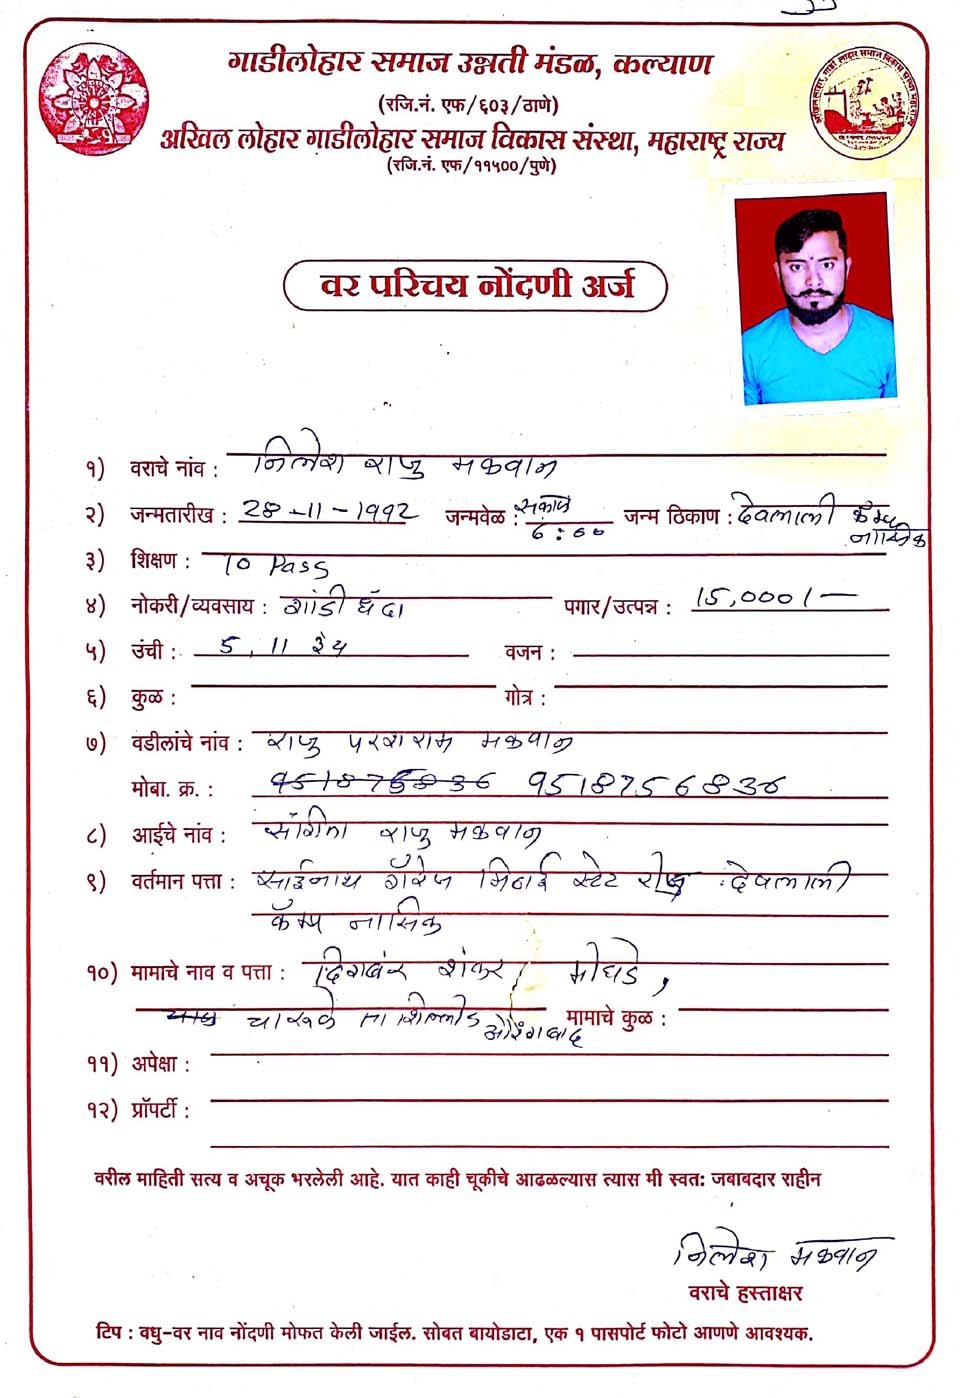 गाडीलोहार समाज उन्नती मंडळ, कल्याण
(रजि.नं. एफ/६०३/ठाणे)
अखिल लोहार गाडीलोहार समाज विकास संस्था, महाराष्ट्र राज्य
(रजि.नं. एफ/११५००/पुणे)
वर परिचय नोंदणी अर्ज
१) वराचे नांव : निलेश राजु मकवान
२) जन्मतारीख : 28-11-1992 जन्मवेळ : सकाळ 6:00 जन्म ठिकाण : देवलाली कॅम्प नासिक
३) शिक्षण : 10 Pass
४) नोकरी/व्यवसाय : धंदा पगार/उत्पन्न : 15,000/-
५) उंची : 5, 11 इंच वजन :
६) कुळ : गोत्र :
७) वडीलांचे नांव : राजु परशराम मकवान
मोबा. क्र. : 9518756836
८) आईचे नांव : संगिता राजु मकवान
९) वर्तमान पत्ता : साईनाथ गॅरेज स्टेट देवलाली
कॅम्प नासिक
१०) मामाचे नाव व पत्ता : दिगंबर शंकर मोघडे,
ता सिल्लोड औरंगाबाद मामाचे कुळ :
११) अपेक्षा :
१२) प्रॉपर्टी :
वरील माहिती सत्य व अचूक भरलेली आहे. यात काही चूकीचे आढळल्यास त्यास मी स्वत: जबाबदार राहीन
निलेश मकवान
वराचे हस्ताक्षर
टिप : वधु-वर नाव नोंदणी मोफत केली जाईल. सोबत बायोडाटा, एक १ पासपोर्ट फोटो आणणे आवश्यक.